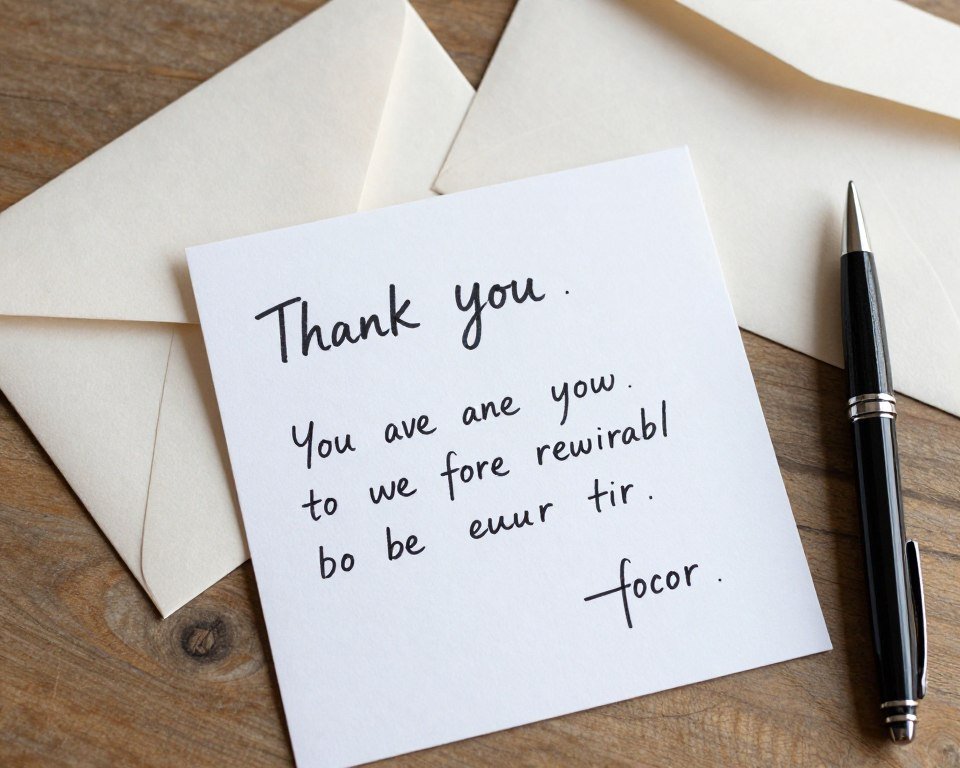 Thank you.
You ave ane yow.
to we fore rewirabl
bo be euur tir.
focor.